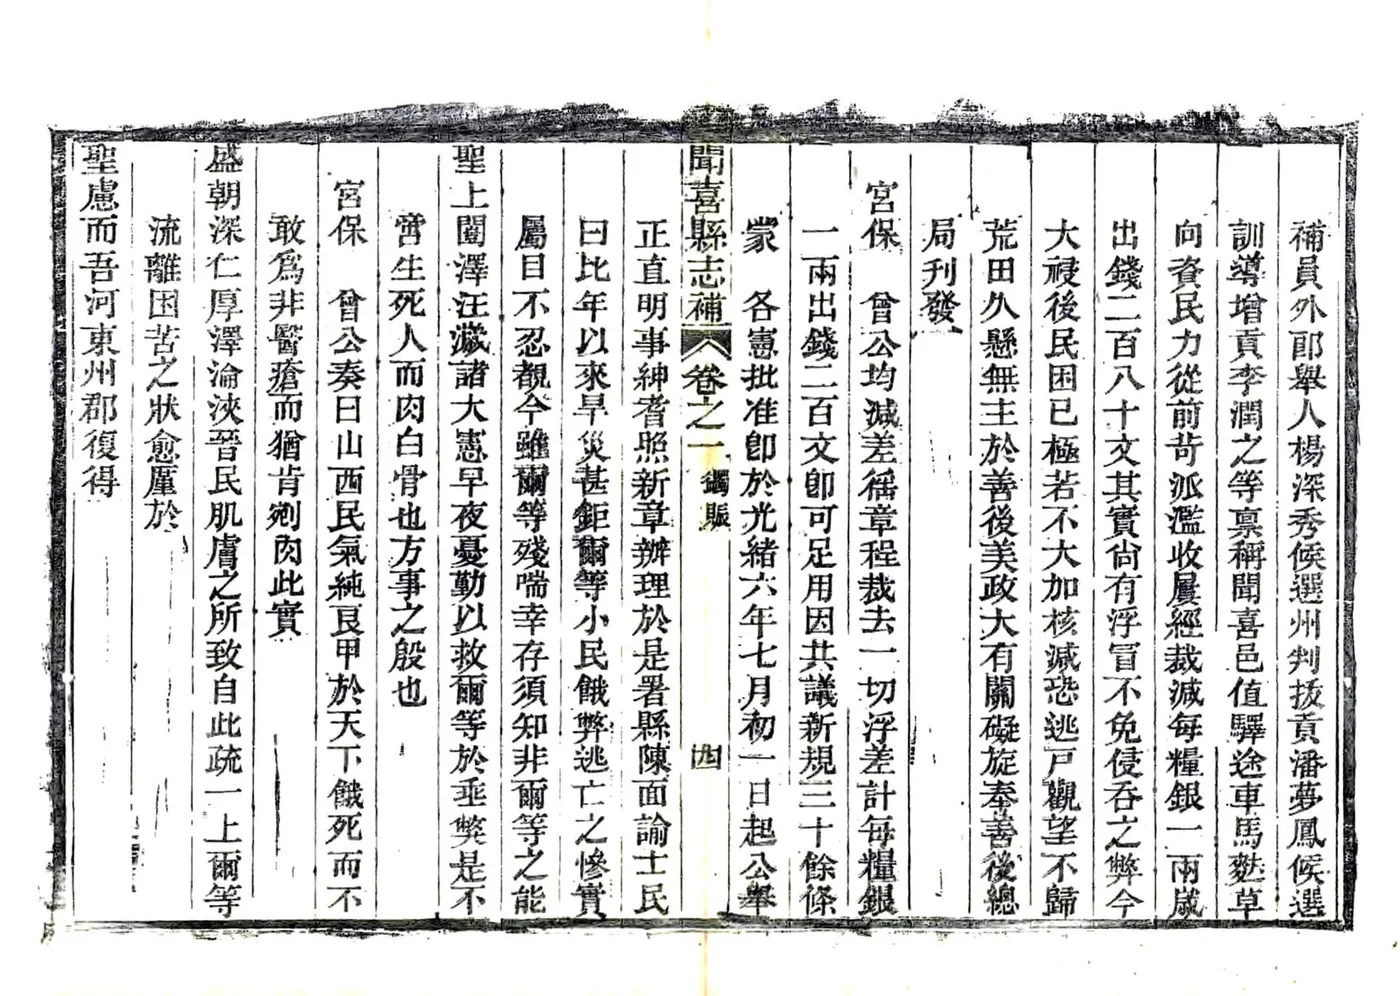 補員外郎舉人楊深秀候選州判拔貢潘夢鳳候選
訓導增貢李潤之等禀稱聞喜邑值驛途車馬麩草
向資民力從前苛派濫收屢經裁減每糧銀一兩歲
出錢二百八十文其實尙有浮冒不免侵吞之弊今
大祲後民困已極若不大加核減恐逃戸觀望不歸
荒田久懸無主於善後美政大有關礙旋奉善後總
局刋發
宮保 曾公均減差徭章程裁去一切浮差計每糧銀
一兩出錢二百文卽可足用因共議新規三十餘條
蒙 各憲批准卽於光緒六年七月初一日起公舉
聞喜縣志補 卷之一 蠲賑 四
正直明事紳耆照新章辦理於是署縣陳面諭士民
曰比年以來旱災甚鉅爾等小民餓弊逃亡之慘實
屬目不忍覩今雖爾等殘喘幸存須知非爾等之能
聖上闓澤汪濊諸大憲早夜憂勤以救爾等於垂斃是不
啻生死人而肉白骨也方事之殷也
宮保 曾公奏曰山西民氣純良甲於天下餓死而不
敢爲非醫瘡而猶肯剜肉此實
盛朝深仁厚澤淪浹晉民肌膚之所致自此疏一上爾等
流離困苦之狀愈厪於
聖慮而吾河東州郡復得